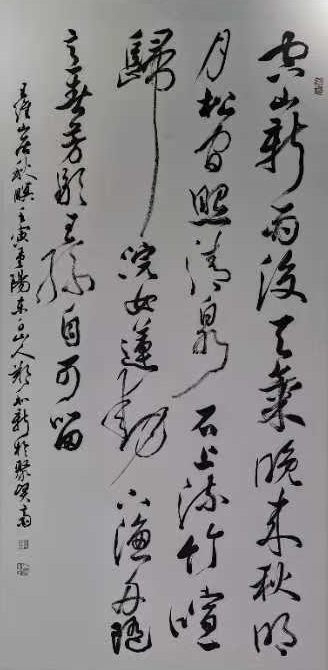 空山新雨後天氣晚來秋明
月松間照清泉石上流竹喧
歸浣女蓮動下漁舟隨
意春芳歇王孫自可留
王維山居秋暝壬寅重陽東白山人鄭新於聚賢